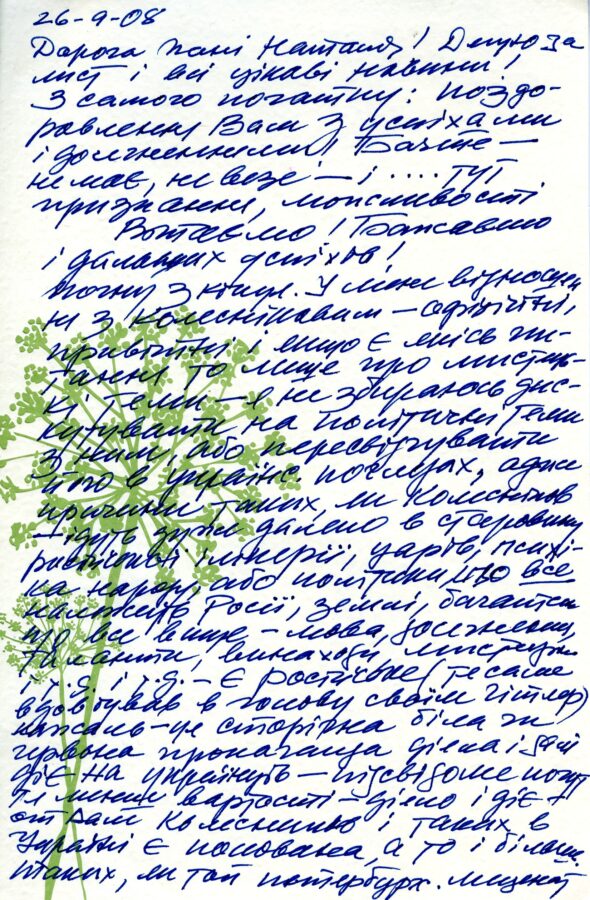 26-9-08
Дорога пані Наталя! Дякую за
лист і всі цікаві новини!
З самого початку: поздо-
ровлення Вам з успіхами
і досягненнями! Бачите —
немає, не везе — і .... тут
признання, можливості
Вітаємо! Бажаємо
і дальших успіхів!
Почну з кінця. У мене відносин
ни з Колесніковим — офіційні,
привітні і якщо є якісь пи-
тання то лише про мистець-
кі теми — я не збираюсь дис-
кутувати на політичні теми
з ним, або пересвідчувати
його в українс. поглядах, адже
причини таких, як Колесніков
— ідуть дуже далеко в старовину
російської імперії, царів, психі-
ка народу, або політики, що все
належить Росії, землі, багатства
що все вище — мова, досягнення,
таланти, винаходи мистецтво
і т.д. і т.д. — є російське (те саме
вдовбував в голову своїм Гітлер)
на жаль — це сторічна біла чи
червона пропаганда діяла і далі
діє на українців — підсвідоме почут
тя менш вартості — діяло і діє +
от Вам Колесніков і таких в
Україні є половина, а то і більше.
таких, як той петербурж. меценат